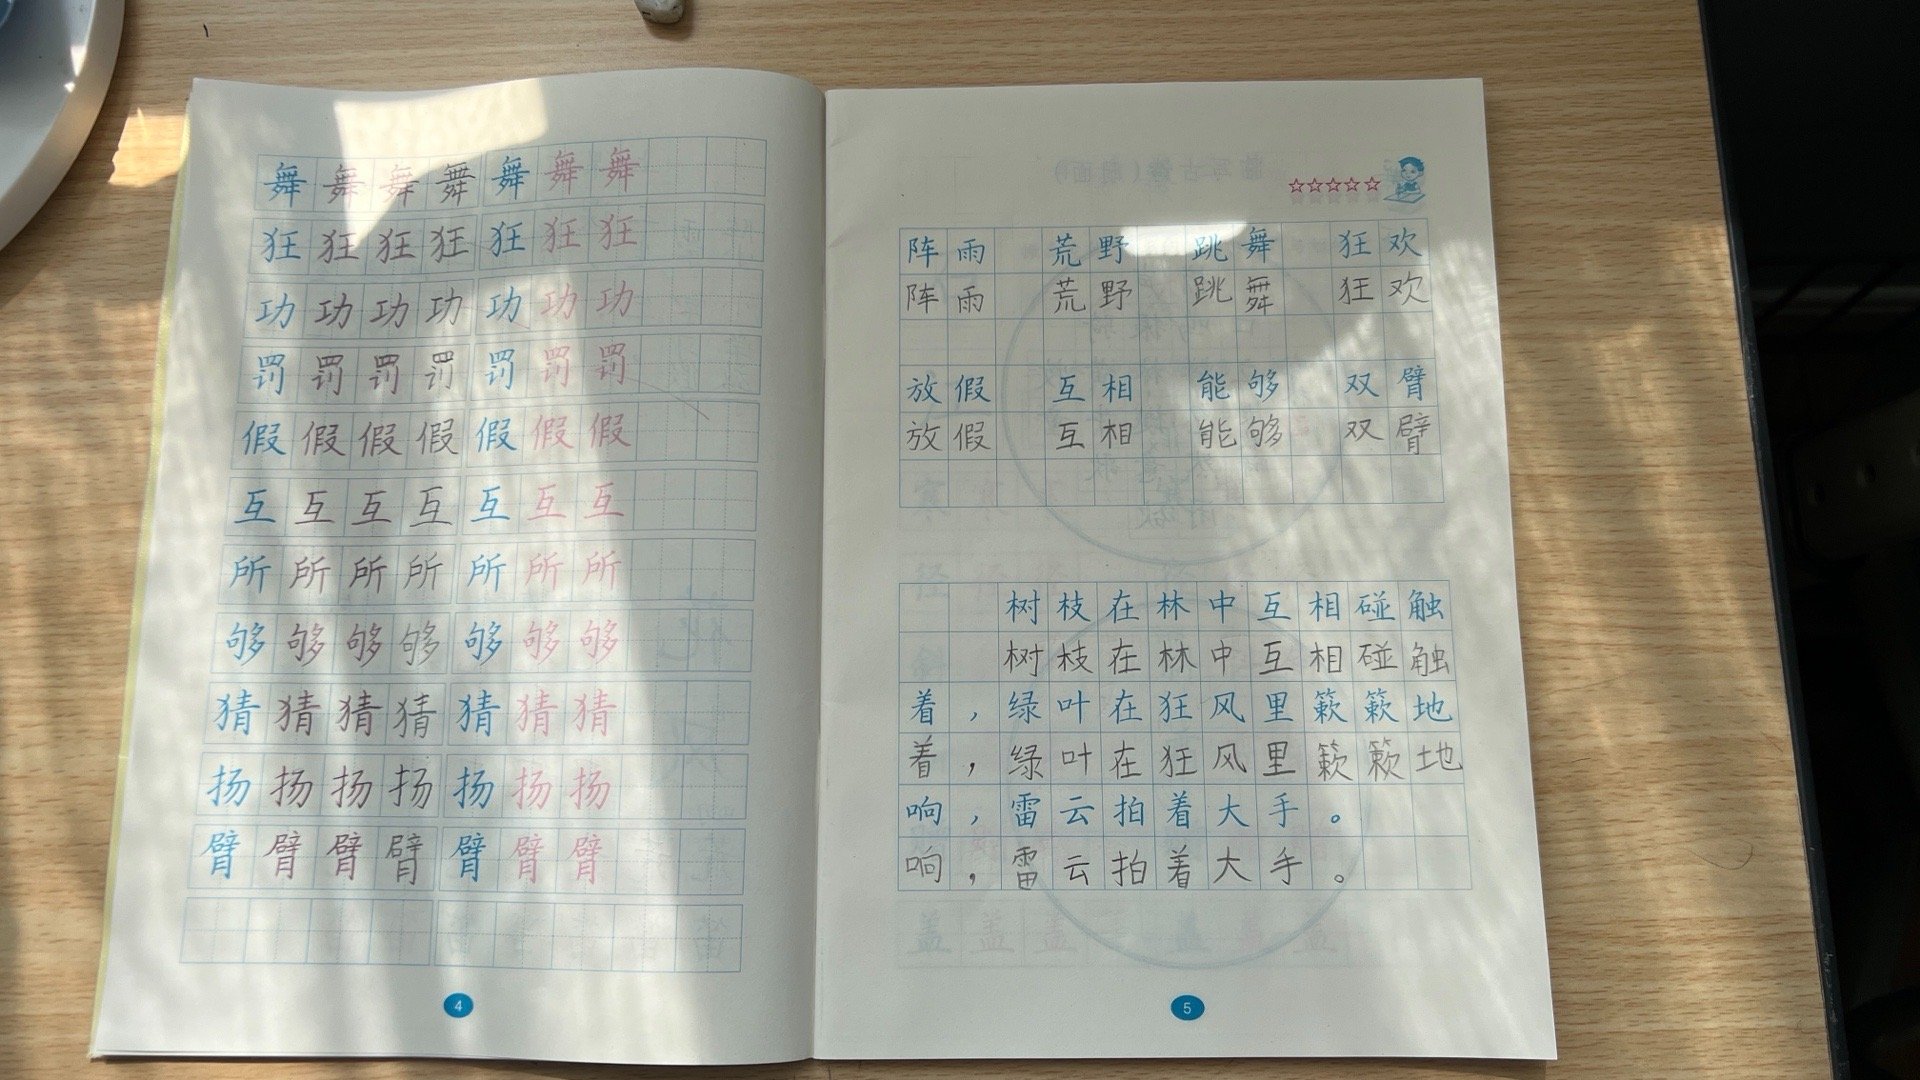 舞舞舞舞舞舞舞
狂狂狂狂狂狂狂
功功功功功功功
罚罚罚罚罚罚罚
假假假假假假假
互互互互互互互
所所所所所所所
够够够够够够够
猜猜猜猜猜猜猜
扬扬扬扬扬扬扬
臂臂臂臂臂臂臂
4
☆☆☆☆☆
阵雨 荒野 跳舞 狂欢
阵雨 荒野 跳舞 狂欢
放假 互相 能够 双臂
放假 互相 能够 双臂
树枝在林中互相碰触
树枝在林中互相碰触
着，绿叶在狂风里簌簌地
着，绿叶在狂风里簌簌地
响，雷云拍着大手。
响，雷云拍着大手。
5